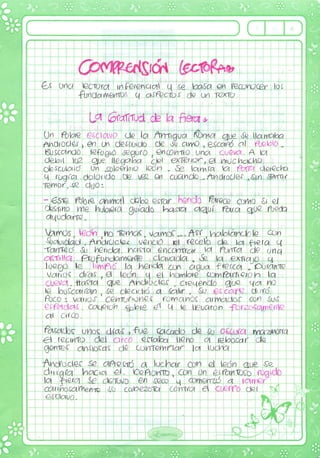 COMPRENSIÓN LECTORA
Es una lectura inferencial y se basa en reconocer los
fundamentos y aspectos de un texto.
La Gratitud de la fiera
Un Pobre esclavo de la Antigua Roma que se llamaba
Androcles, en un descuido de su amo, escapó al
Buscando refugio seguro, encontró una cueva. A la
débil luz que llegaba del exterior, el muchacho
león. Se lamía la Pata derecha
y rugía dolorido de vez en cuando. Androcles, sin sentir
temor, se dijo:
- Este Pobre animal debe estar herido. Parece como si el
destino me hubiera guiado hasta aquí Para que pueda
ayudarle.
Vamos, león, no temas, vamos... Así, hablándole con
suavidad, Androcles venció el recelo de la fiera y
tanteó su herida hasta encontrar la Punta de una
Profundamente clavada. Se la extrajo y
luego le limpió la herida con agua fresca. Durante
varios días, el león y el hombre compartieron la
cueva. Hasta que Androcles, creyendo que ya no
le buscarían se decidió a salir. Su
Poco: varios centuriones romanos armados con sus
espadas cayeron sobre él y le llevaron forzosamente
al circo.
Pasados unos días, fue sacado de su oscura mazmorra
el recinto del circo estaba lleno a rebosar de
gentes ansiosas de contemplar la lucha.
Androcles se aprestó a luchar con el león que se
dirigía hacia él. De Pronto, con un espantoso rugido
la fiera se detuvo en seco y comenzó a
cariñosamente su cabezota contra el cuerpo del
esclavo.